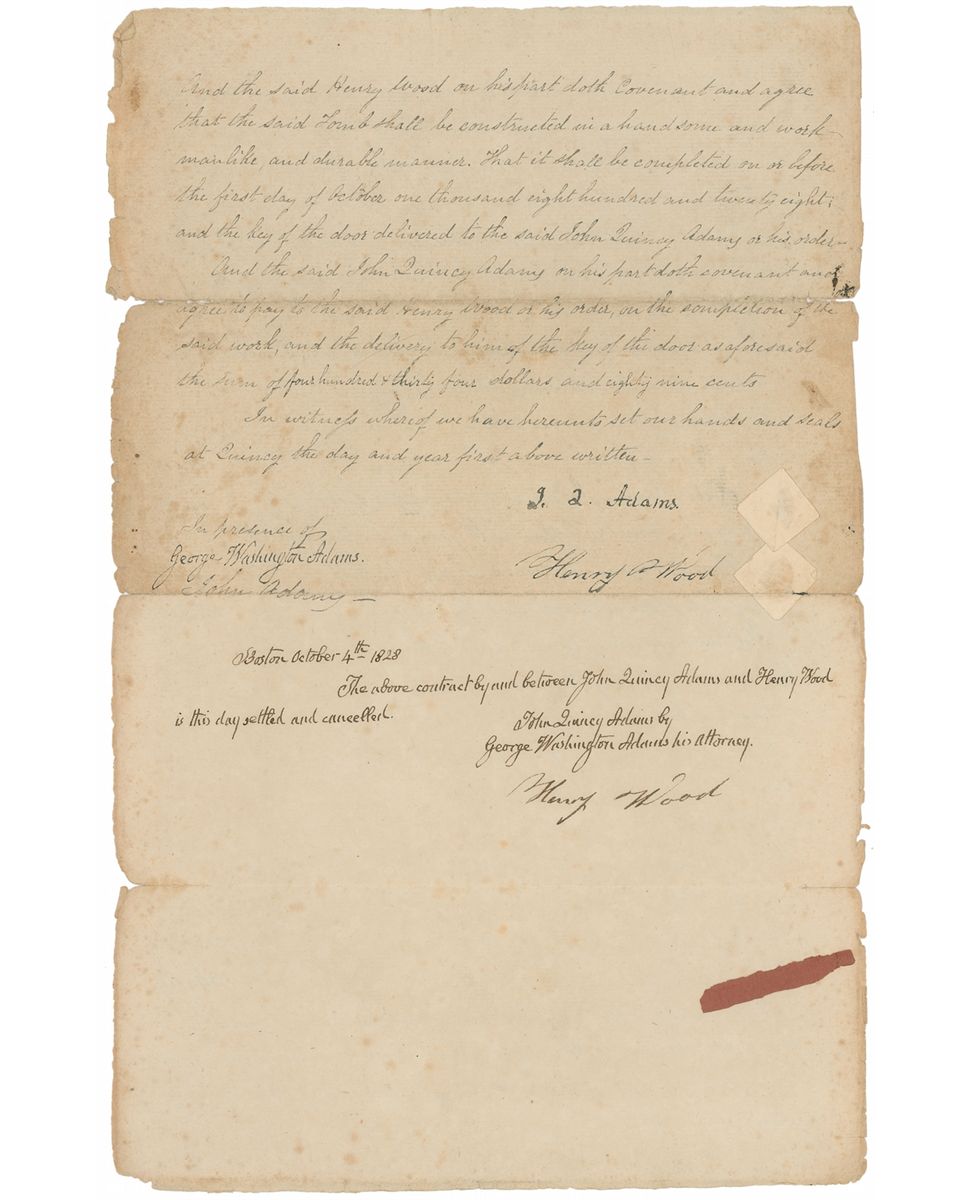 And the said Henry Wood on his part doth Covenant and agree
that the said Tomb shall be constructed in a handsome and work-
manlike, and durable manner. That it shall be completed on or before
the first day of October one thousand eight hundred and twenty eight;
and the key of the door delivered to the said John Quincy Adams or his order—
And the said John Quincy Adams on his part doth covenant and
agree to pay to the said Henry Wood or his order, on the completion of the
said work, and the delivery to him of the key of the door as aforesaid
the sum of four hundred & thirty four dollars and eighty nine cents
In witness whereof we have hereunto set our hands and seals
at Quincy the day and year first above written—
J. Q. Adams.
In presence of
George Washington Adams.
Henry Wood
John Adams—
Boston October 4th 1828
The above contract by and between John Quincy Adams and Henry Wood
is this day settled and cancelled.
John Quincy Adams by
George Washington Adams his Attorney.
Henry Wood